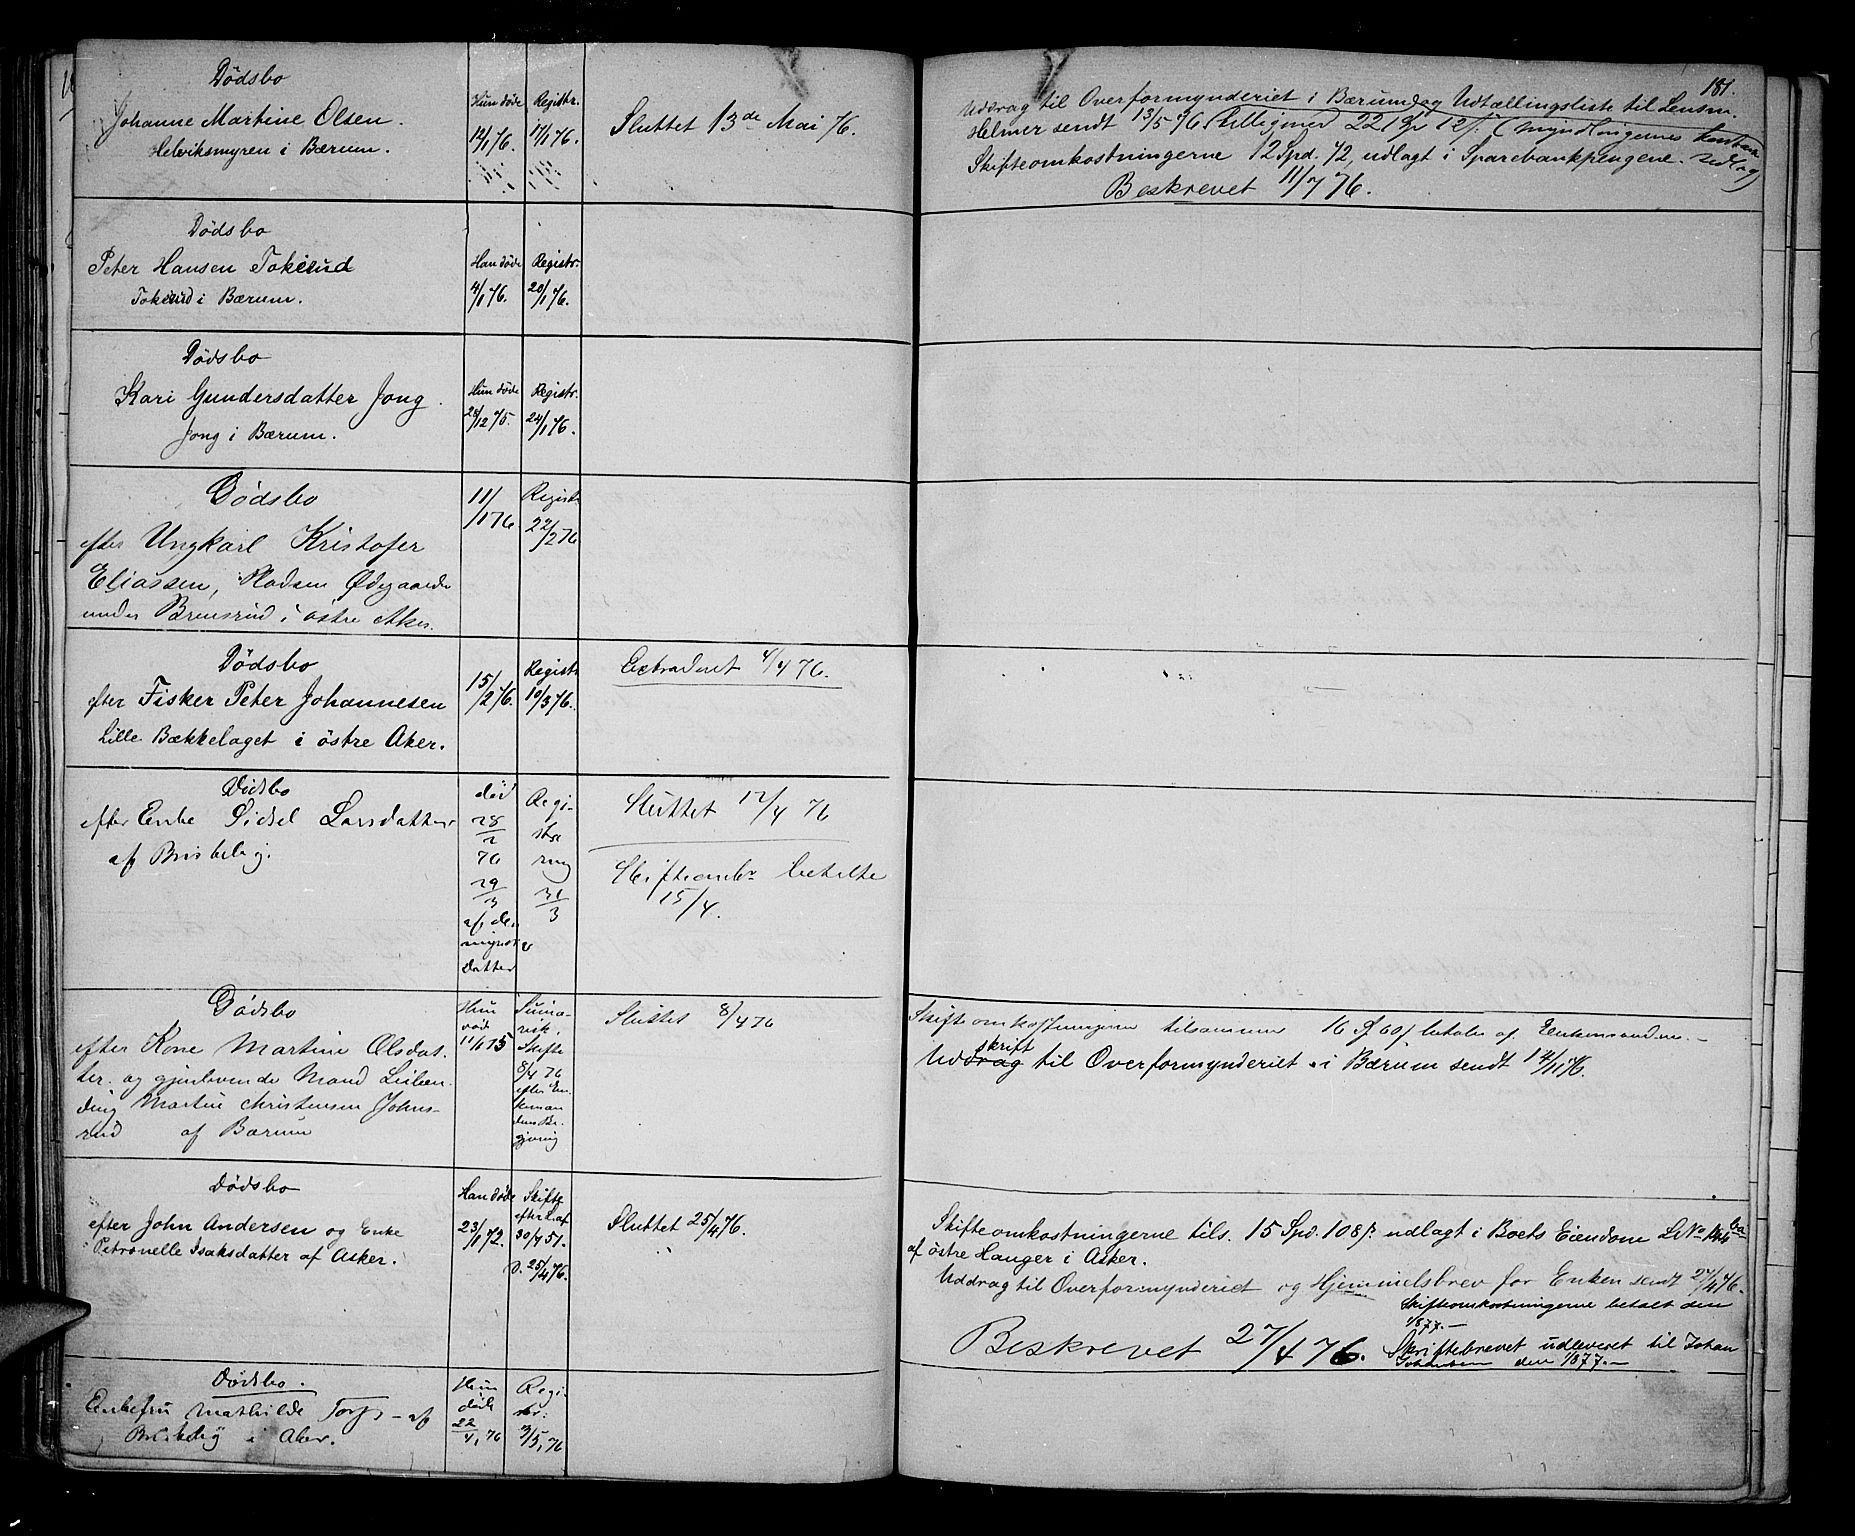 181.
Dödsbo
Johanne Martine Olsen.
Helviksmyren i Bærum.
Hun döde
12/1 76.
Registr.
17/1 76.
Sluttet 13de Mai 76.
Uddrag til Overformynderiet i Bærum og Udtællingsliste til Lensm.
Helmer sendt 13/5 76 tilligemed 22 Spd 12 /: (Myndlingernes
Skifteomkostningerne 12 Spd. 72, udlagt i Sparebankpengene. Udlæg)
Beskrevet 11/7 76.
Dödsbo
Peter Hansen Tokerud
Tokerud i Bærum.
Han döde
4/1 76.
Registr.
20/1 76.
Dödsbo
Kari Gundersdatter Jong.
Jong i Bærum.
Hun döde
28/12 75.
Registr.
24/1 76.
Dödsbo
efter Ungkarl Kristofer
Eliassen, Pladsen Ødegaarden
under Brensrud i östre Aker.
11/1 76
Registr
22/2 76
Dödsbo
efter Fisker Peter Johannesen
Lille Bækkelaget i östre Aker.
15/2 76.
Registr
10/3 76.
Extraderet 4/4 76.
Dödsbo
efter Enke Sidsel Larsdatter
af Brisbelig.
död
28/2
76
29/3
af den
myndige
Datter
Registrering
31/3
Sluttet 12/4 76
Skifteomkr betalte
15/4.
Dödsbo
efter Kone Martine Olsdatter
og gjenlevende Mand
Martin Christensen Johnsrud
af Bærum
Hun
död
11/1 75
Sumarisk
Skifte
8/4 76
efter Enkemandens
Begjæring
Sluttet 8/4 76
Skifteomkostningerne tilsammen 16 Kr 60 / betales af Enkemanden. –
Uddrag skrift til Overformynderiet i Bærum sendt 14/11 76.
Dödsbo
efter John Andersen og Enke
Petronelle Isaksdatter af Asker.
Han döde
23/1 72.
Skifte
efter L. af
30/7 51.
d. 25/4 76.
Sluttet 25/4 76.
Skifteomkostningerne tils. 15 Spd. 108 /: udlagt i Boets Eiendom L No 144
af östre Hauger i Asker.
Uddrag til Overformynderiet og Hjemmelsbrev for Enken sendt 27/4 76.
Skifteomkostningerne betalt den
1/8 77. –
Beskrevet 27/4 76. Skiftebrevet udleveret til Johan
den 1/8 77. –
Dödsbo.
Enkefru Mathilde Torp – af
Brisbelig i Aker.
Hun
döde
22/4, 76
Registr:
3/5, 76